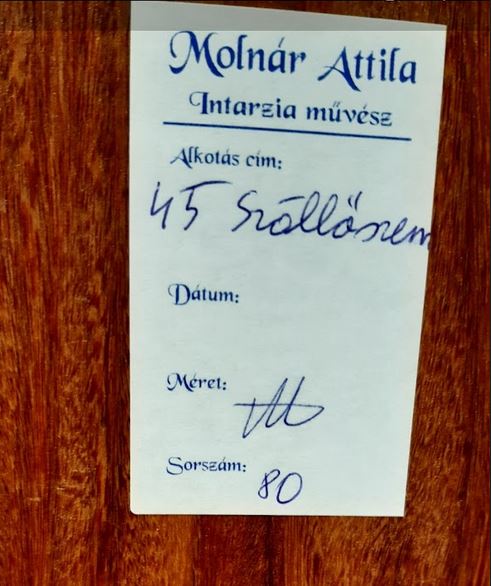 Molnár Attila
Intarzia művész
Alkotás cím:
45 Szőllőszem
Dátum:
Méret:
Sorszám:
80